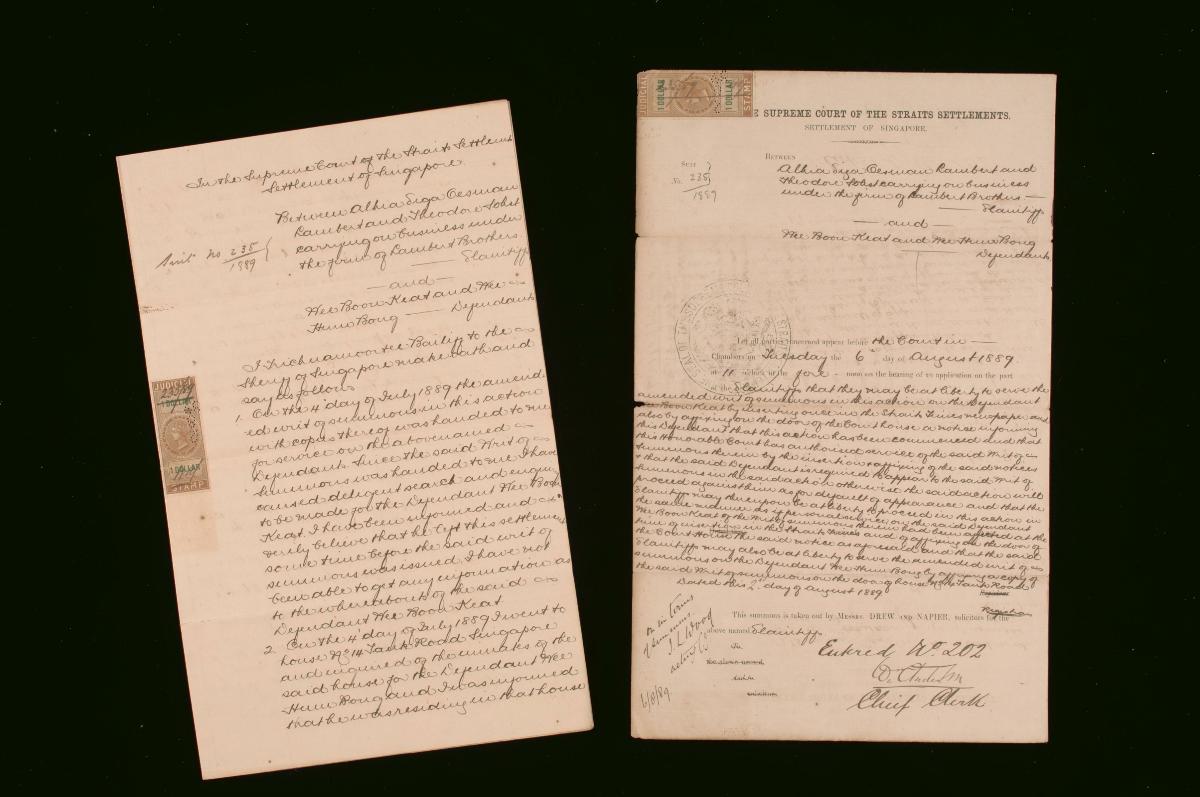 In the Supreme Court of the Straits Settlement
Settlement of Singapore.
Between Albia Siga Oesman
Lambert and Theodore Sohst
carrying on business under
the firm of Lambert Brothers.
Plaintiffs
Suit No 235
1889
and
Wee Boon Keat and Wee
Hum Bong Defendants
Bailiff to the
Sheriff of Singapore make oath and
say as follows
1. On the 4th day of July 1889 the amend
ed writ of summons in this action
with copies thereof was handed to me
for service on the abovenamed
Defendants. Since the said Writ of
Summons was handed to me I have
caused diligent search and enquiry
to be made for the Defendant Wee Boon
Keat. I have been informed and
verily believe that he left this settlement
some time before the said writ of
summons was issued. I have not
been able to get any information as
to the whereabouts of the said
Defendant Wee Boon Keat
2. On the 4th day of July 1889 I went to
house No 14 Tank Road Singapore
and inquired of the inmates of the
said house for the Defendant Wee
Hum Bong and I was informed
that he was residing in that house
JUDICIAL
1 DOLLAR
1 DOLLAR
STAMP
JUDICIAL
1 DOLLAR
1 DOLLAR
STAMP
E SUPREME COURT OF THE STRAITS SETTLEMENTS.
SETTLEMENT OF SINGAPORE.
SUIT
No. 235
1889
BETWEEN
Albia Siga Oesman Lambert and
Theodore Sohst carrying on business
under the firm of Lambert Brothers
Plaintiffs
and
Wee Boon Keat and Wee Hum Bong
Defendants
Let all parties concerned appear before the Court in
Chambers on Tuesday the 6th day of August 1889.
at 11 o'clock in the fore-noon on the hearing of an application on the part
of the Plaintiffs that they may be at liberty to serve the
amended writ of summons in this action on the Defendant
Wee Boon Keat by inserting once in the Straits Times newspaper and
also by affixing on the door of the Court house a notice informing
this Defendant that this action has been commenced and that
this Honorable Court has authorised service of the said Writ of
Summons therein by the insertion & affixing of the said notices
& that the said Defendant is required to appear to the said Writ of
Summons in the said action otherwise the said action will
proceed against him as for default of appearance and that the
Plaintiffs may thereupon be at liberty to proceed in this action in
the same manner as if personal service on the said Defendant
Wee Boon Keat of the Writ of Summons therein had been effected at the
time of insertion in the Straits Times and of affixing on the door of
the Court House the said notice as aforesaid and that the said
Plaintiffs may also be at liberty to serve the amended writ of
summons on the Defendant Wee Hum Bong by affixing a copy of
the said Writ of summons on the door of house No 14 Tank Road
Dated this 2nd day of August 1889
Registrar
This summons is taken out by MESSRS. DREW AND NAPIER, solicitors for the
above named Plaintiffs
To
the above named
Or in terms
of summons.
J. L. Wood
6/8/89
Entred No. 202
Chief Clerk